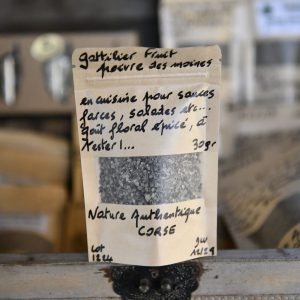 gattilier Fruit
poivre des moines
en cuisine pour sauces
farces, salades etc...
goût floral épicé, à
tester !...
30gr
Nature Authentique
CORSE
Lot
1224
12/29